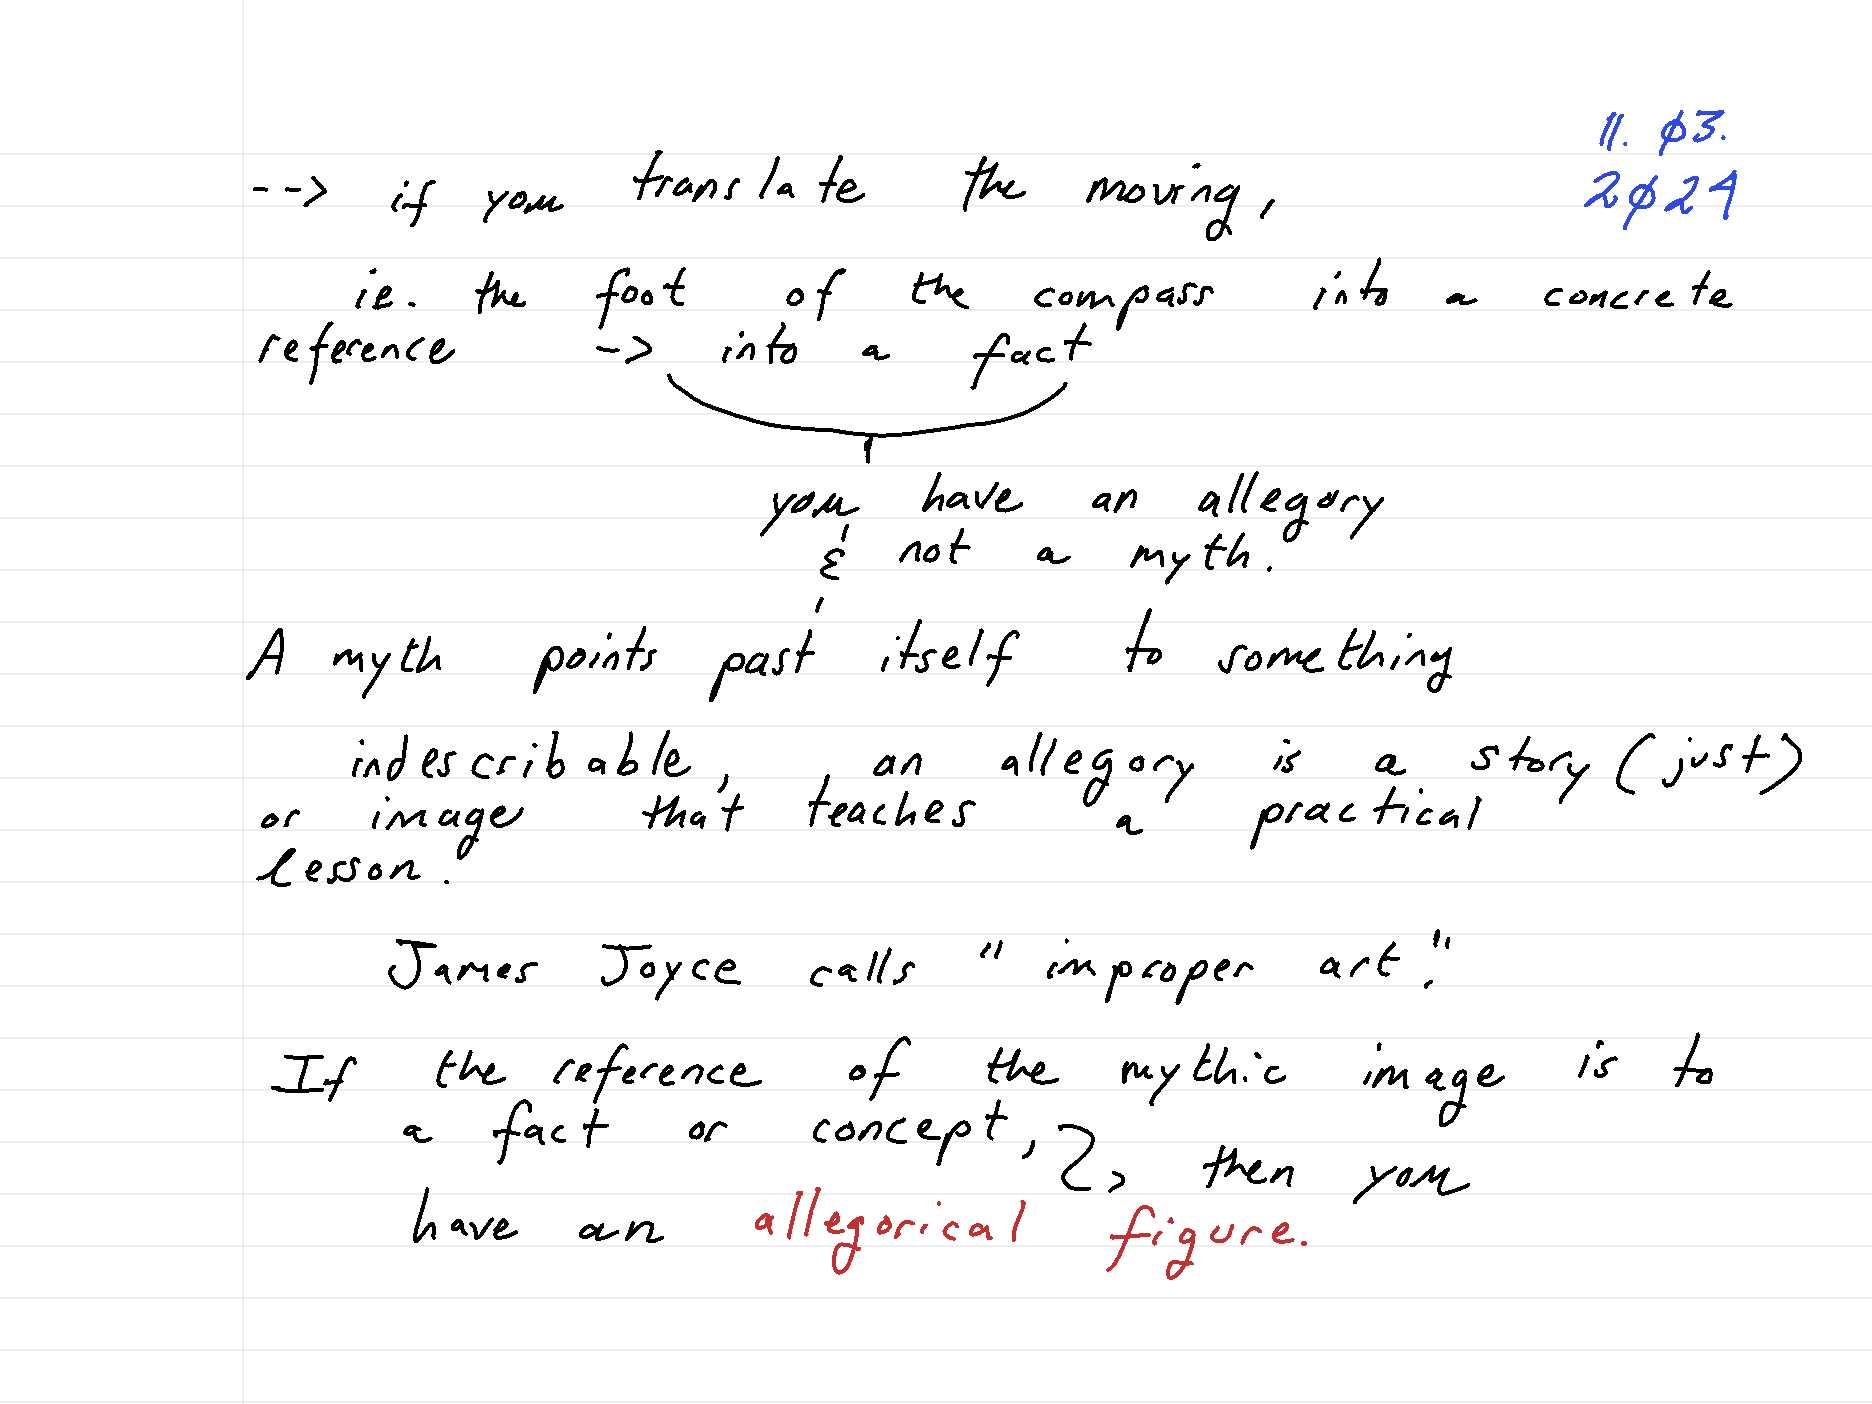 11. ø3.
2ø24
--> if you translate the moving,
ie. the foot of the compass into a concrete
reference -> into a fact
you have an allegory
& not a myth.
A myth points past itself to something
indescribable, , an allegory is a story (just)
or image that teaches a practical
lesson.
James Joyce calls "improper art".
If the reference of the mythic image is to
a fact or concept, then you
have an allegorical figure.